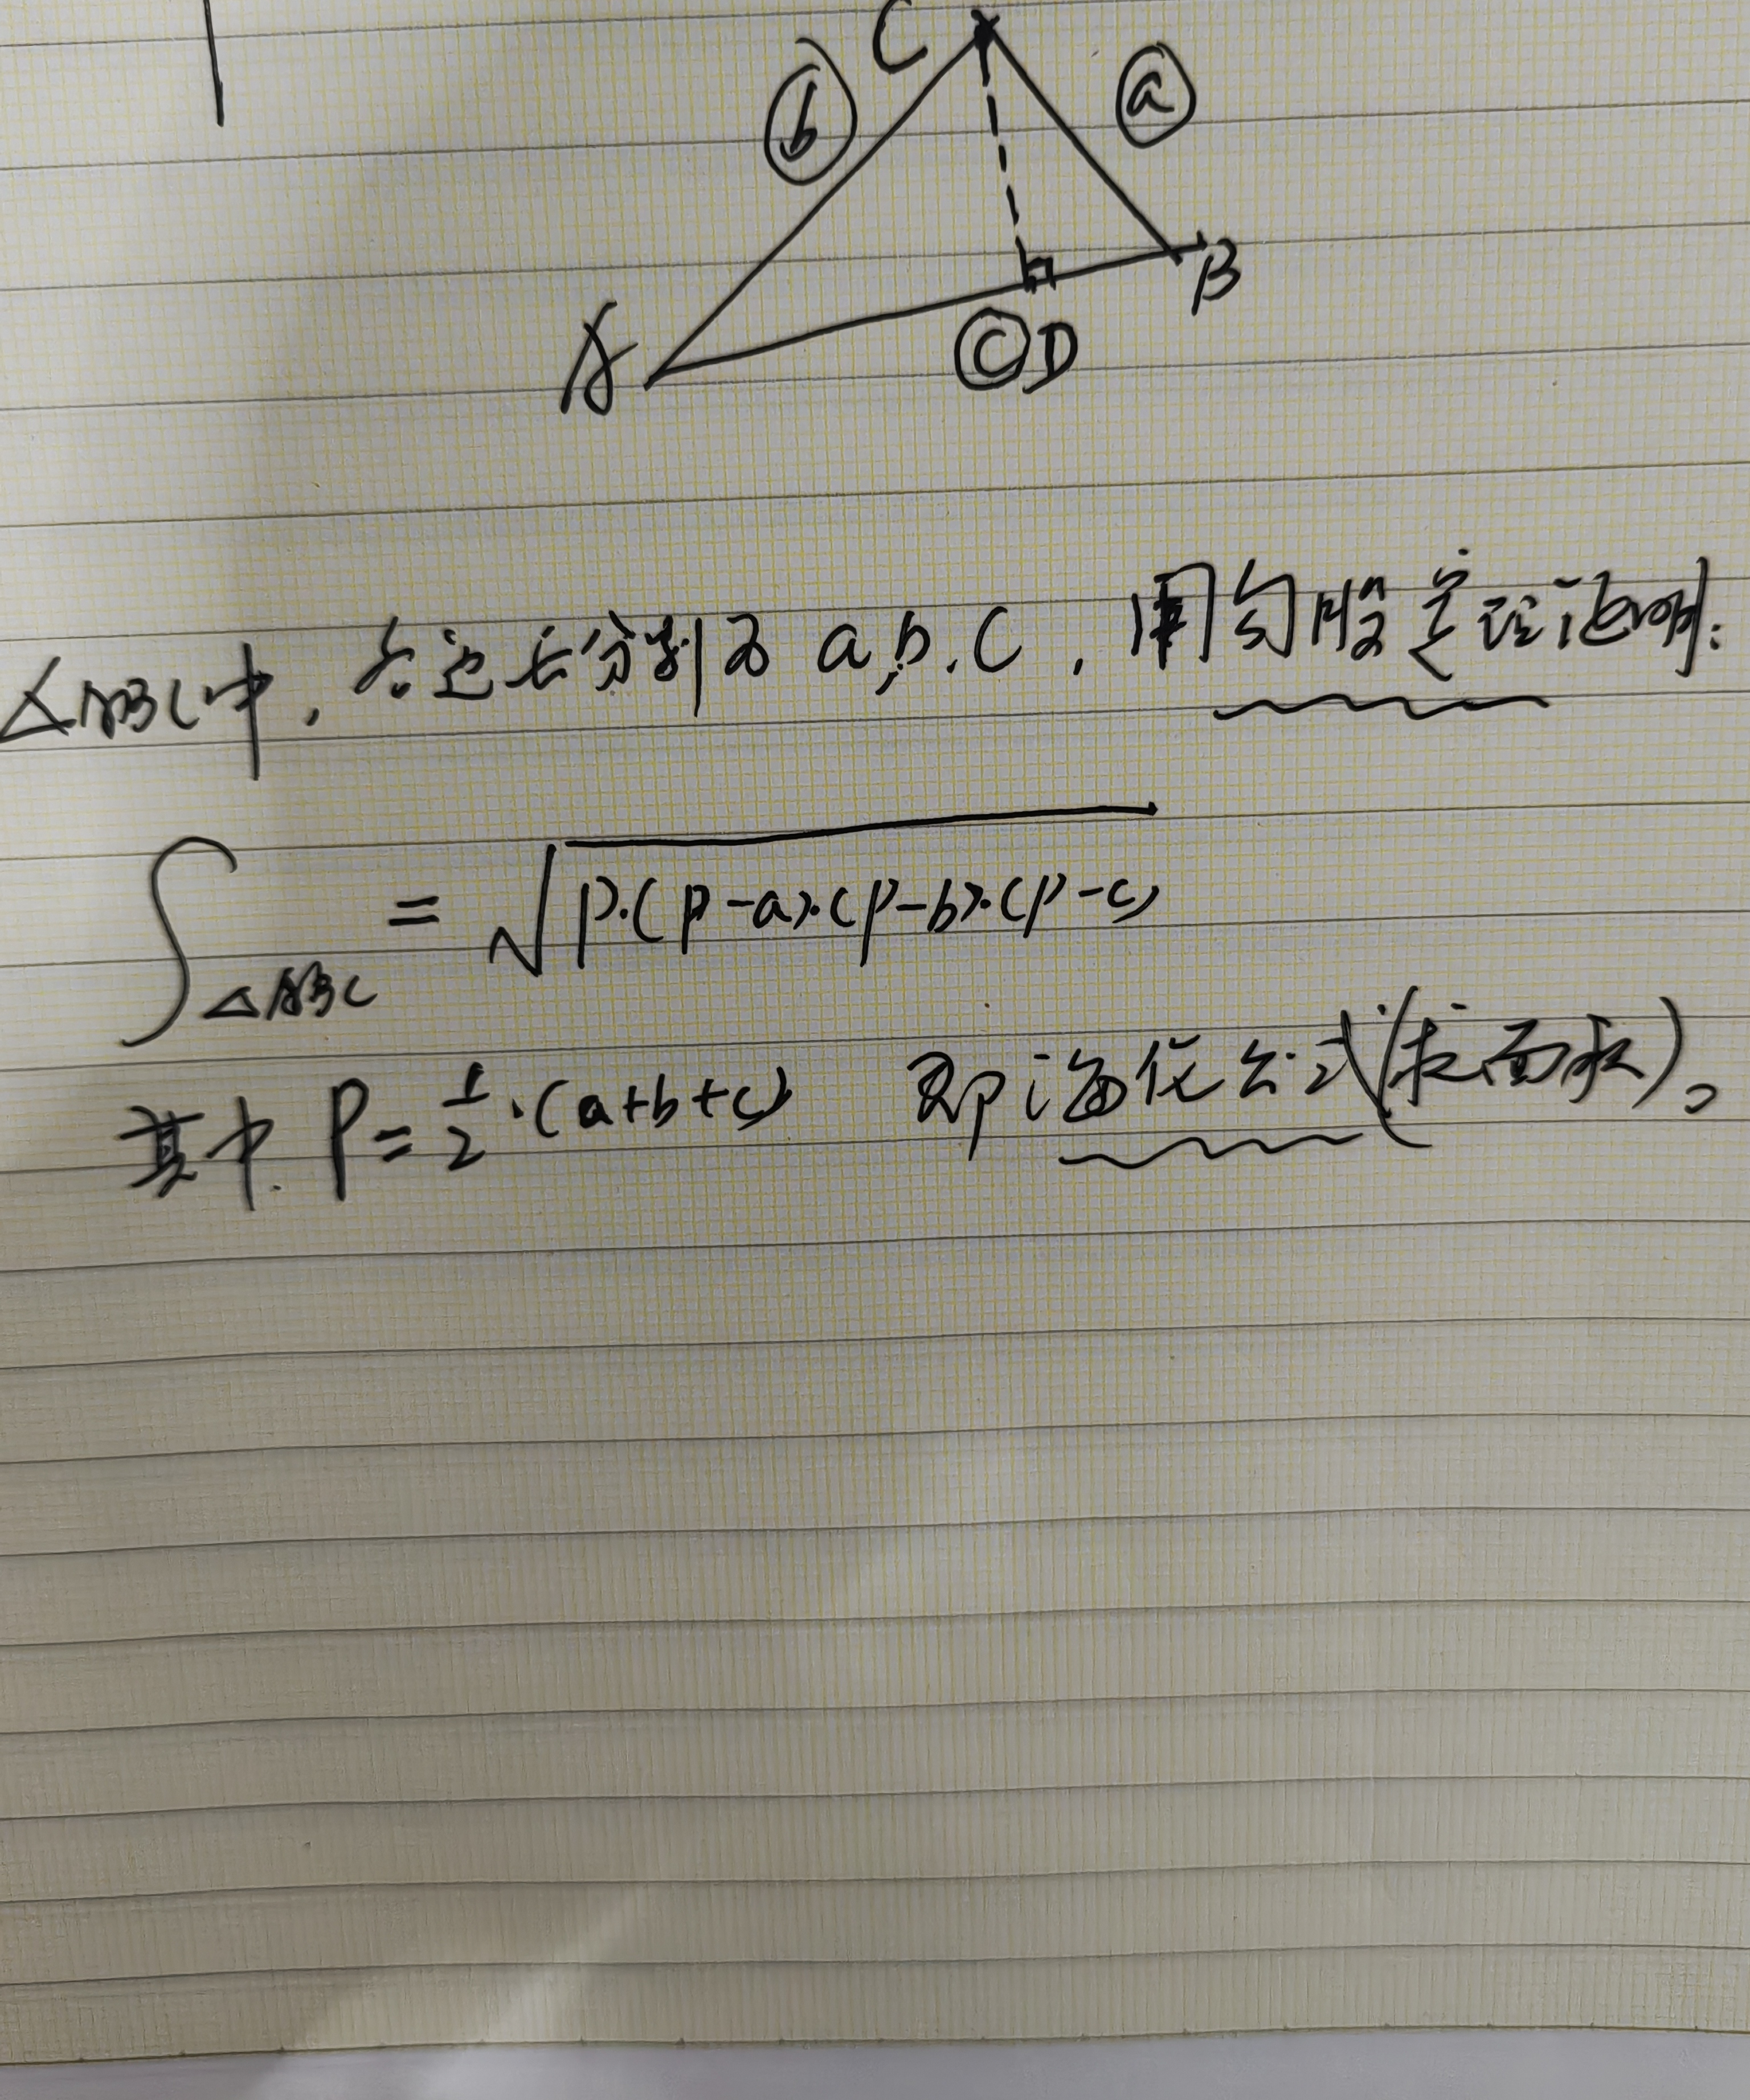 C
b
a
A
B
C D
△ABC中,各边长分别为 a,b,c,用勾股定理证明:
S△ABC = √p·(p-a)·(p-b)·(p-c)
其中. P=1/2·(a+b+c) 即海伦公式(求面积)。